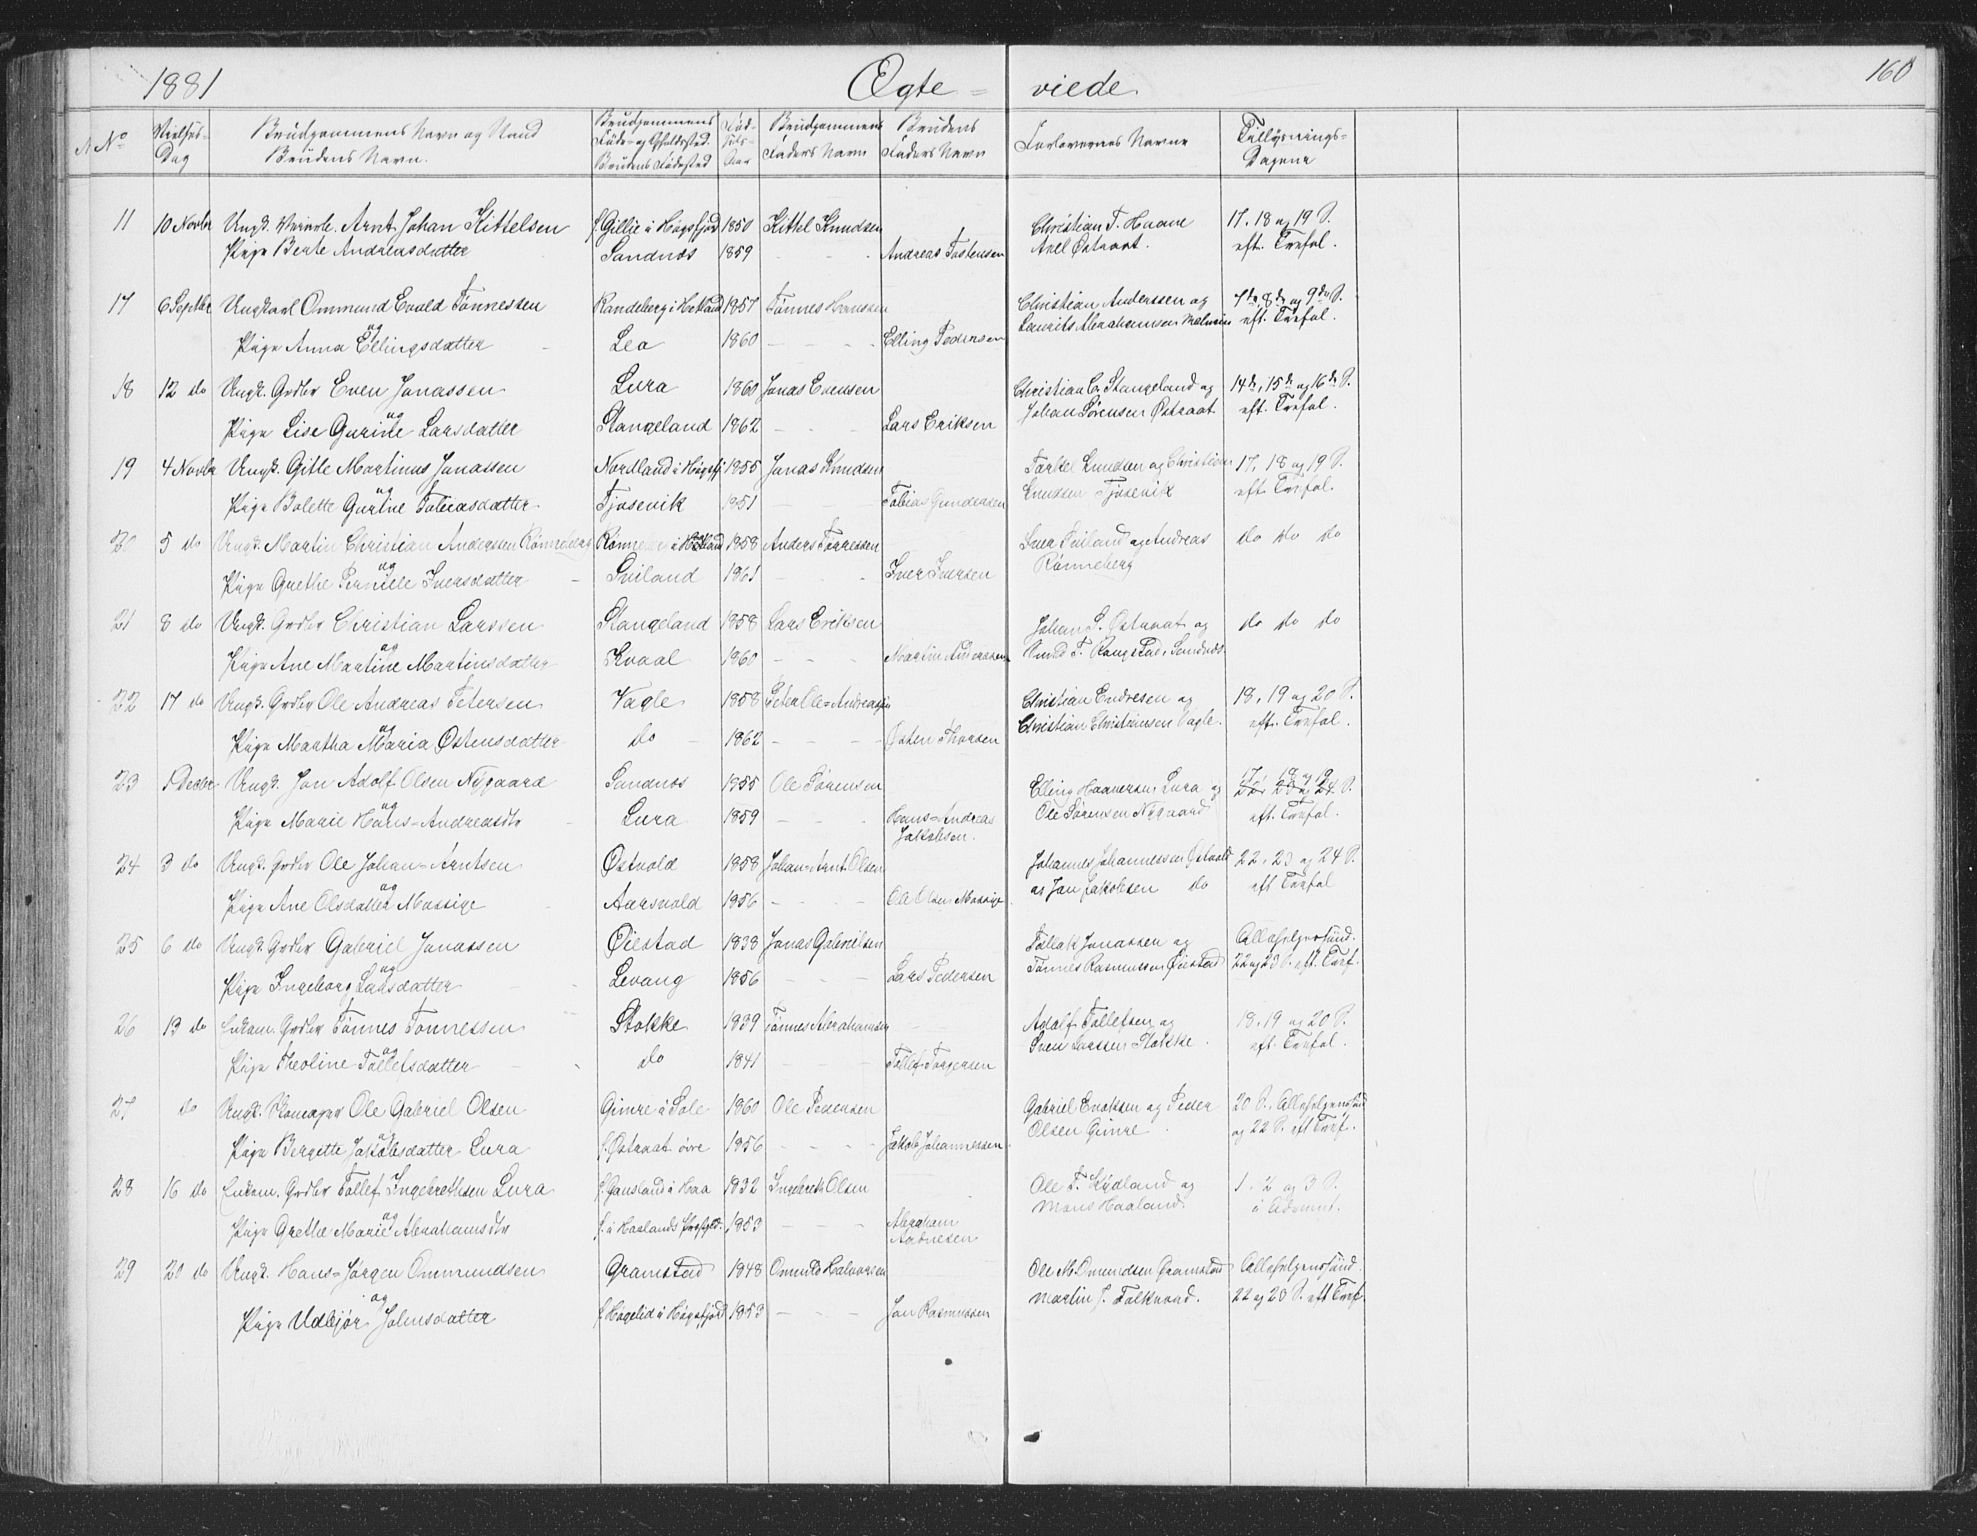 1881 Ægte - viede 160
No Vielses- Dag Brudgommens Navn og Stand Brudens Navn. Brudgommens Føde- og Opholdssted. Brudens Fødested Fød- sels- Aar Brudgommens Faders Navn Brudens Faders Navn Forlovernes Navne Tillysnings- Dagene
11 10 Novbr Ungk. Arnt Johan Kittelsen f. Gillie i Høgsfjord 1850 Kittel Knudsen Christian T. Haave 17. 18 og 19 S.
Pige Beate Andreasdatter Sandnæs 1859 - - - Andreas Tostensen Axel Østraat. eft. Trefol.
17 6 Septbr Ungkarl Ommund Evald Tønnessen Randeberg i Hetland 1857 Tønnes Hanssen Christian Anderssen og 7de, 8de og 9de S.
og
Pige Anna Ellingsdatter Lea 1860 - - - Elling Pedersen Laurits Abrahamsen Malmin eft. Trefol.
18 12 do Ungk. Grdbr Even Jonassen Lura 1860 Jonas Evensen Christian C. Stangeland og 14de, 15de og 16de S.
og
Pige Lise Gurine Larsdatter Stangeland 1862 - - - Lars Eriksen Johan Sørensen Østraat eft. Trefol.
19 4 Novbr Ungk. Gitle Martinus Jonassen Nordland i Høgsfj 1855 Jonas Knudsen Torkel Knudsen og Christian 17, 18 og 19 S.
og
Pige Bolette Gurine Tobiasdatter Tjosevik 1851 - - Tobias Gundersen Knudsen Tjosevik eft. Trefol.
20 5 do Ungk. Martin Christian Andersen Rønneberg Rønneberg i Hetland 1858 Anders Torressen Iver Sviland og Andreas do do do
og
Pige Grethe Pernille Iversdatter Sviland 1861 - - Iver Iversen Rønneberg
21 8 do Ungk. Grdbr Christian Larssen Stangeland 1858 Lars Eriksen Johan S. Østraat og do do do
og
Pige Ane Martine Martinsdatter Kvaal 1860 - - - Martin Andersen T. Rangstad, Sandnæs.
22 17 do Ungk. Grdbr Ole Andreas Petersen Vagle 1858 Peter Ole-Andreassen Christian Endresen og 18, 19 og 20 S.
og
Pige Martha Maria Østensdatter do 1862 - - - Østen Thorsen Christian Christiansen Vagle. eft. Trefol.
23 1 Decbr Ungk. Jan Adolf Olsen Nygaard Sandnæs 1855 Ole Sørensen Elling Haaversen Lura og 17, 18 og 19 22, 23 og 24 S.
og
Pige Marie Hans-Andreasdtr Lura 1859 - - - Hans-Andreas Jakobsen. Ole Sørensen Nygaard eft. Trefol.
24 3 do Ungk. Grdbr Ole Johan-Arntsen Østvold 1858 Johan-Arnt Olsen Johannes Johannessen Østvold 22, 23 og 24 S.
og
Pige Ane Olsdatter Mossige Aarsvold 1856 - - - Ole Olsen Mossige og Jan Jakobsen do eft Trefol
25 6 do Ungk. Grdbr Gabriel Jonassen Øiestad 1838 Jonas Gabrielsen Tollak Jonassen og Allehelgenssünd.
og
Pige Ingeborg Larsdatter Levang 1856 - - Lars Pedersen Tønnes Rasmussen Øiestad 22 og 23 S. eft. Tref.
26 13 do Enkem. Grdbr Tønnes Tønnessen Stokke 1839 Tønnes Abrahamsen Adolf Tollefsen og 18, 19 og 20 S.
og
Pige Theoline Tollefsdatter do 1841 - - - Tollef Torgersen Sven Larssen Stokke. eft. Trefol.
27 do Ungk. Skomager Ole Gabriel Olsen Gimre i Sole 1860 Ole Pedersen Gabriel Enoksen og Peder 20 S., Allehelgenssünd
Pige Bergette Jakobsdatter Lura f. Østraat øvre 1856 - - - Jakob Johannessen Olsen Gimre. og 22 S. eft Tref.
28 16 do Enkem. Grdbr Tollef Ingebrethsen Lura f. Gausland i Haa 1832 Ingebreth Olsen Ole T. Kydland og 1. 2 og 3 S.
og
Pige Grethe Marie Abrahamsdtr f. i Haalands Prgjeld. 1853 - - - Abraham Aadnesen Mons Haaland. i Advent.
29 20 do Ungk. Hans-Jørgen Ommundsen Gramstad 1848 Omund Halvorsen Ole M. Omundsen Gramstad Allehelgenssünd.
og
Pige Udbjør Johnsdatter f. Høgelid i Høgsfjord 1853 - - - Jon Rasmussen Martin J. Folkvord. 22 og 23 S. eft Tref.